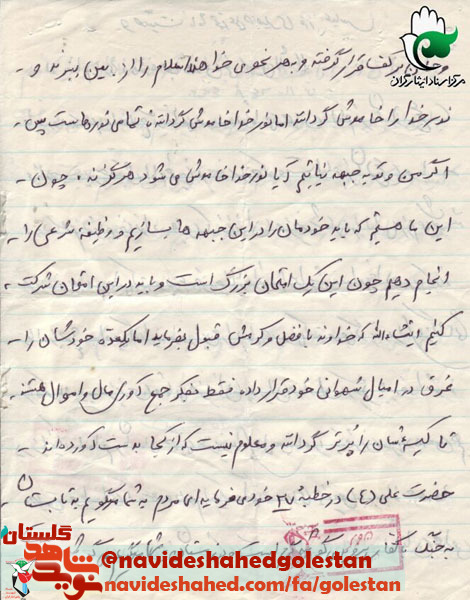 مرکز اسناد ایثارگران
و حق در کف قرار گرفته و بهر نحوی میخواهند اسلام را از بین ببرند و
نور خدا را خاموش گردانند اما نور خدا خاموش گردانند تمامی نورهاست پس
اگر من و تو به جبهه نیائیم آیا نور خدا خاموش می شود هرگز نه . چون
این ما هستیم که باید خودمان را در این جبهه ها بسازیم و وظیفه شرعی را
انجام دهیم چون این یک امتحان بزرگ است و باید در این امتحان شرکت
کنیم انشاءالله که خداوند با فضل و کرمش قبول بفرماید اما یکعده خودشان را
غرق در امیال شهوانی خود قرار داده فقط بفکر جمع آوری مال و اموال هستند
تا کیسه شان را پرتر گردانند و معلوم نیست که از کجا بدست آورده اند
حضرت علی (ع) در خطبه ۲۷ خود می فرماید ای مردم به شما میگویم به تابستان
به جنگ
گلستان
نوید شاهد
@navideshahedgolestan
navideshahed.com/fa/golestan